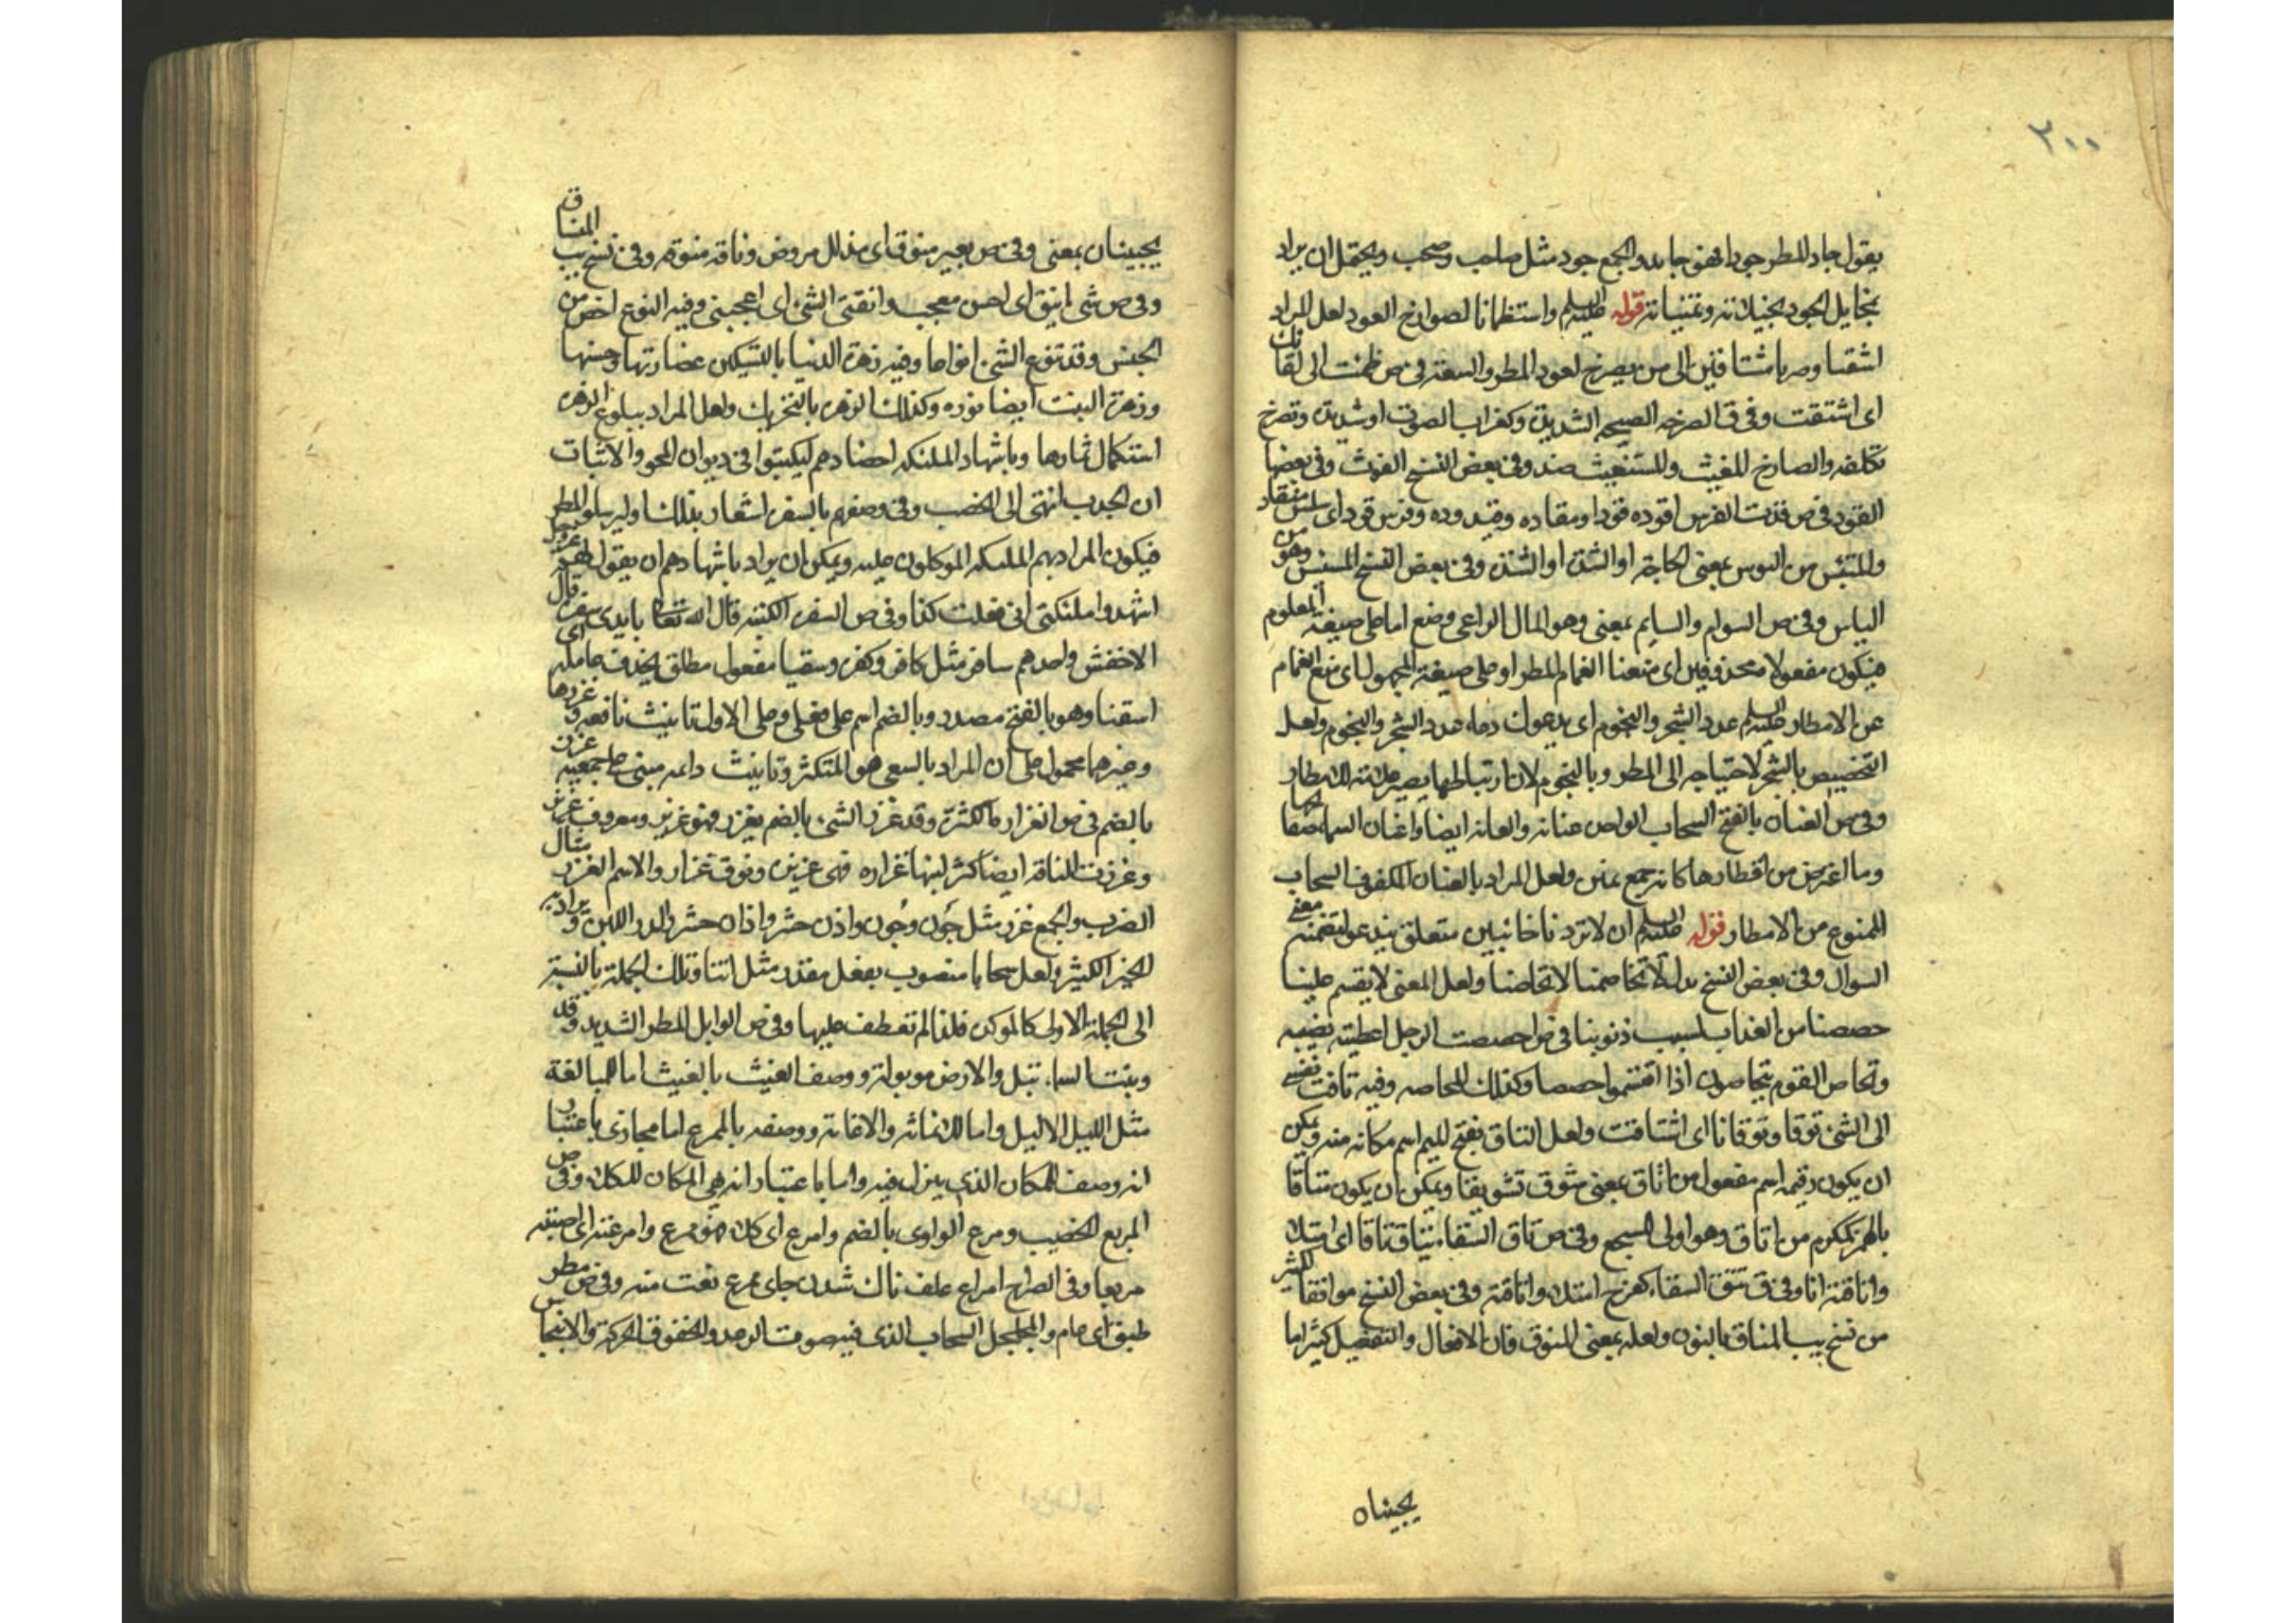 ٢٠٠
يقول جاد المطر جودا فهو جايد والجمع جود مثل صاحب وصحب ويحتمل ان يراد
بمخايل الجود مخيلاته وتمنياته قوله عليه السلم واستظمانا لصوارخ العود لعل المراد
اشقنا وصرنا مشتاقين الى من يصرخ لعود المطر والسعة في ص ظمئت الى لقائك
اى اشتقت وفى ق الصرخه الصيحه الشديدة وكغراب الصوت او شديده وتصرخ
تكلفه والصارخ المغيث والمستغيث ضد وفى بعض النسخ الغوث وفى بعضها
القود فى ص قدت الفرس اقوده قودا ومقاده وقيدوده وفرس قود اى سلس منقاد
والمبتئس من البوس بمعنى الحاجة او الشدة وفى بعض النسخ وهو من
الياس وفى ص السوام والسايم بمعنى وهو المال الراعى وضع اما على صيغة المعلوم
فيكون مفعولا محذوفين اى منعنا الغمام المطر او على صيغة المجهول اى منع الغمام
عن الامطار عليه السلم عدد الشجر والنجوم اى يدعوك دعاء عدد الشجر والنجوم ولعل
التخصيص بالشجر لاحتياجه الى المطر وبالنجوم لان ارتباطها يصير علة الامطار
وفى ص العنان بالفتح السحاب الواحدة عنانة والعانه ايضا واعنان السماء صفايحها
وما اعترض من اقطارها كانه جمع عنن ولعل المراد بالعنان المكفوف السحاب
الممنوع من الامطار قوله عليه السلم ان لا تردنا خائبين متعلق بندعو لتضمنه معنى
السوال وفى بعض النسخ بدل لا تخاصمنا لا تحاصنا ولعل المعنى لا يقسم علينا
حصصنا من العذاب بسبب ذنوبنا فى ص احصصت الرجل اعطيته نصيبه
وتحاص القوم يتحاصون اذا اقتسموا حصصا وكذلك المحاصه وفيه تاقت نفسى
الى الشئ توقا وتوقانا اى اشتاقت ولعل المتاق بفتح الميم اسم مكانه منه ويمكن
ان يكون اسم مفعول من اتاق بمعنى شوق تشويقا ويمكن ان يكون متاقا
بالهمز كمكرم من اتاق وهو اولى للسجع وفى ص تاق السقاء يتاق تاقا اى امتلا
واتاقته انا وفى ق تئق السقاء كفرح امتلا واتاقته وفى بعض النسخ موافقا لكثير
من نسخ يب المناق بالنون ولعله بمعنى المنوق فان الافعال والتفعيل كثيرا ما
يجيئان
يجيئان بمعنى وفى ص بعير منوق اى مذلل مروض وناقة منوقة وفى نسخ يب المناق
وفى ص شئ انيق اى حسن معجب وانقنى الشئ اى اعجبنى وفيه النوع اخص من
الجنس وقد تنوع الشئ انواعا وفيه زهرة الدنيا بالتسكين غضارتها وحسنها
وزهرة النبت ايضا نوره وكذلك الزهرة بالتحريك ولعل المراد ببلوغ الزهرة
استكمال ثمارها وباشهاد الملئكه احضارهم ليكتبوا فى ديوان المحو والاثبات
ان الجدب انتهى الى الخصب وفى وصفهم بالسفرة اشعار بذلك او ليرسلوا المطر
فيكون المراد بهم الملئكة الموكلون عليه ويمكن ان يراد باشهادهم ان يقول لهم عز وجل
اشهدوا ملئكتى انى فعلت كذا وفى ص السفرة الكتبة قال الله تعالى بايدى سفرة قال
الاخفش واحدهم سافر مثل كافر وكفرة وسقيا مفعول مطلق بحذف عامله اى
اسقنا وهو بالفتح مصدر وبالضم اسم على فعلى وعلى الاول تانيث نافعه وغزرها
وغيرهما محمول على ان المراد بالسقى هو المتكثر وتانيث دائمه مبنى على جمعيه غزرة
بالضم فى ص الغزارة الكثرة وقد غزر الشئ بالضم يغزر فهو غزير ومعروف غزير
وغزرت الناقة ايضا كثر لبنها غزارة فهى غزيرة ونوق غزار والاسم الغزر مثال
الضرب والجمع غزر مثل جَون وجُون واذن حشر واذان حشر والدر اللبن ويراد به
الخير الكثير ولعل سحابا منصوب بفعل مقدر مثل اتنا وتلك الجملة بالنسبة
الى الجملة الاولى كالموكدة فلذا لم تعطف عليها وفى ص الوابل المطر الشديد وقد
وبلت السماء تبل والارض موبولة ووصف الغيث بالمغيث اما للمبالغة
مثل الليل الاليل واما للاغاثة والاعانة ووصفه بالممرع اما مجازى باعتبار
انه وصف للمكان الذى ينزل فيه واما باعتبار انه هيا المكان للكلاء وفى ص
المريع الخصيب ومرع الوادى بالضم وامرع اى كلاء فهو ممرع وامرعته اى اصبته
مريعا وفى الصراح امراع علف ناك شدن جاى ممرع نعت منه وفى ص مطر
طبق اى عام والمجلجل السحاب الذى فيه صوت الرعد والخفوق الحركة والانبجاس